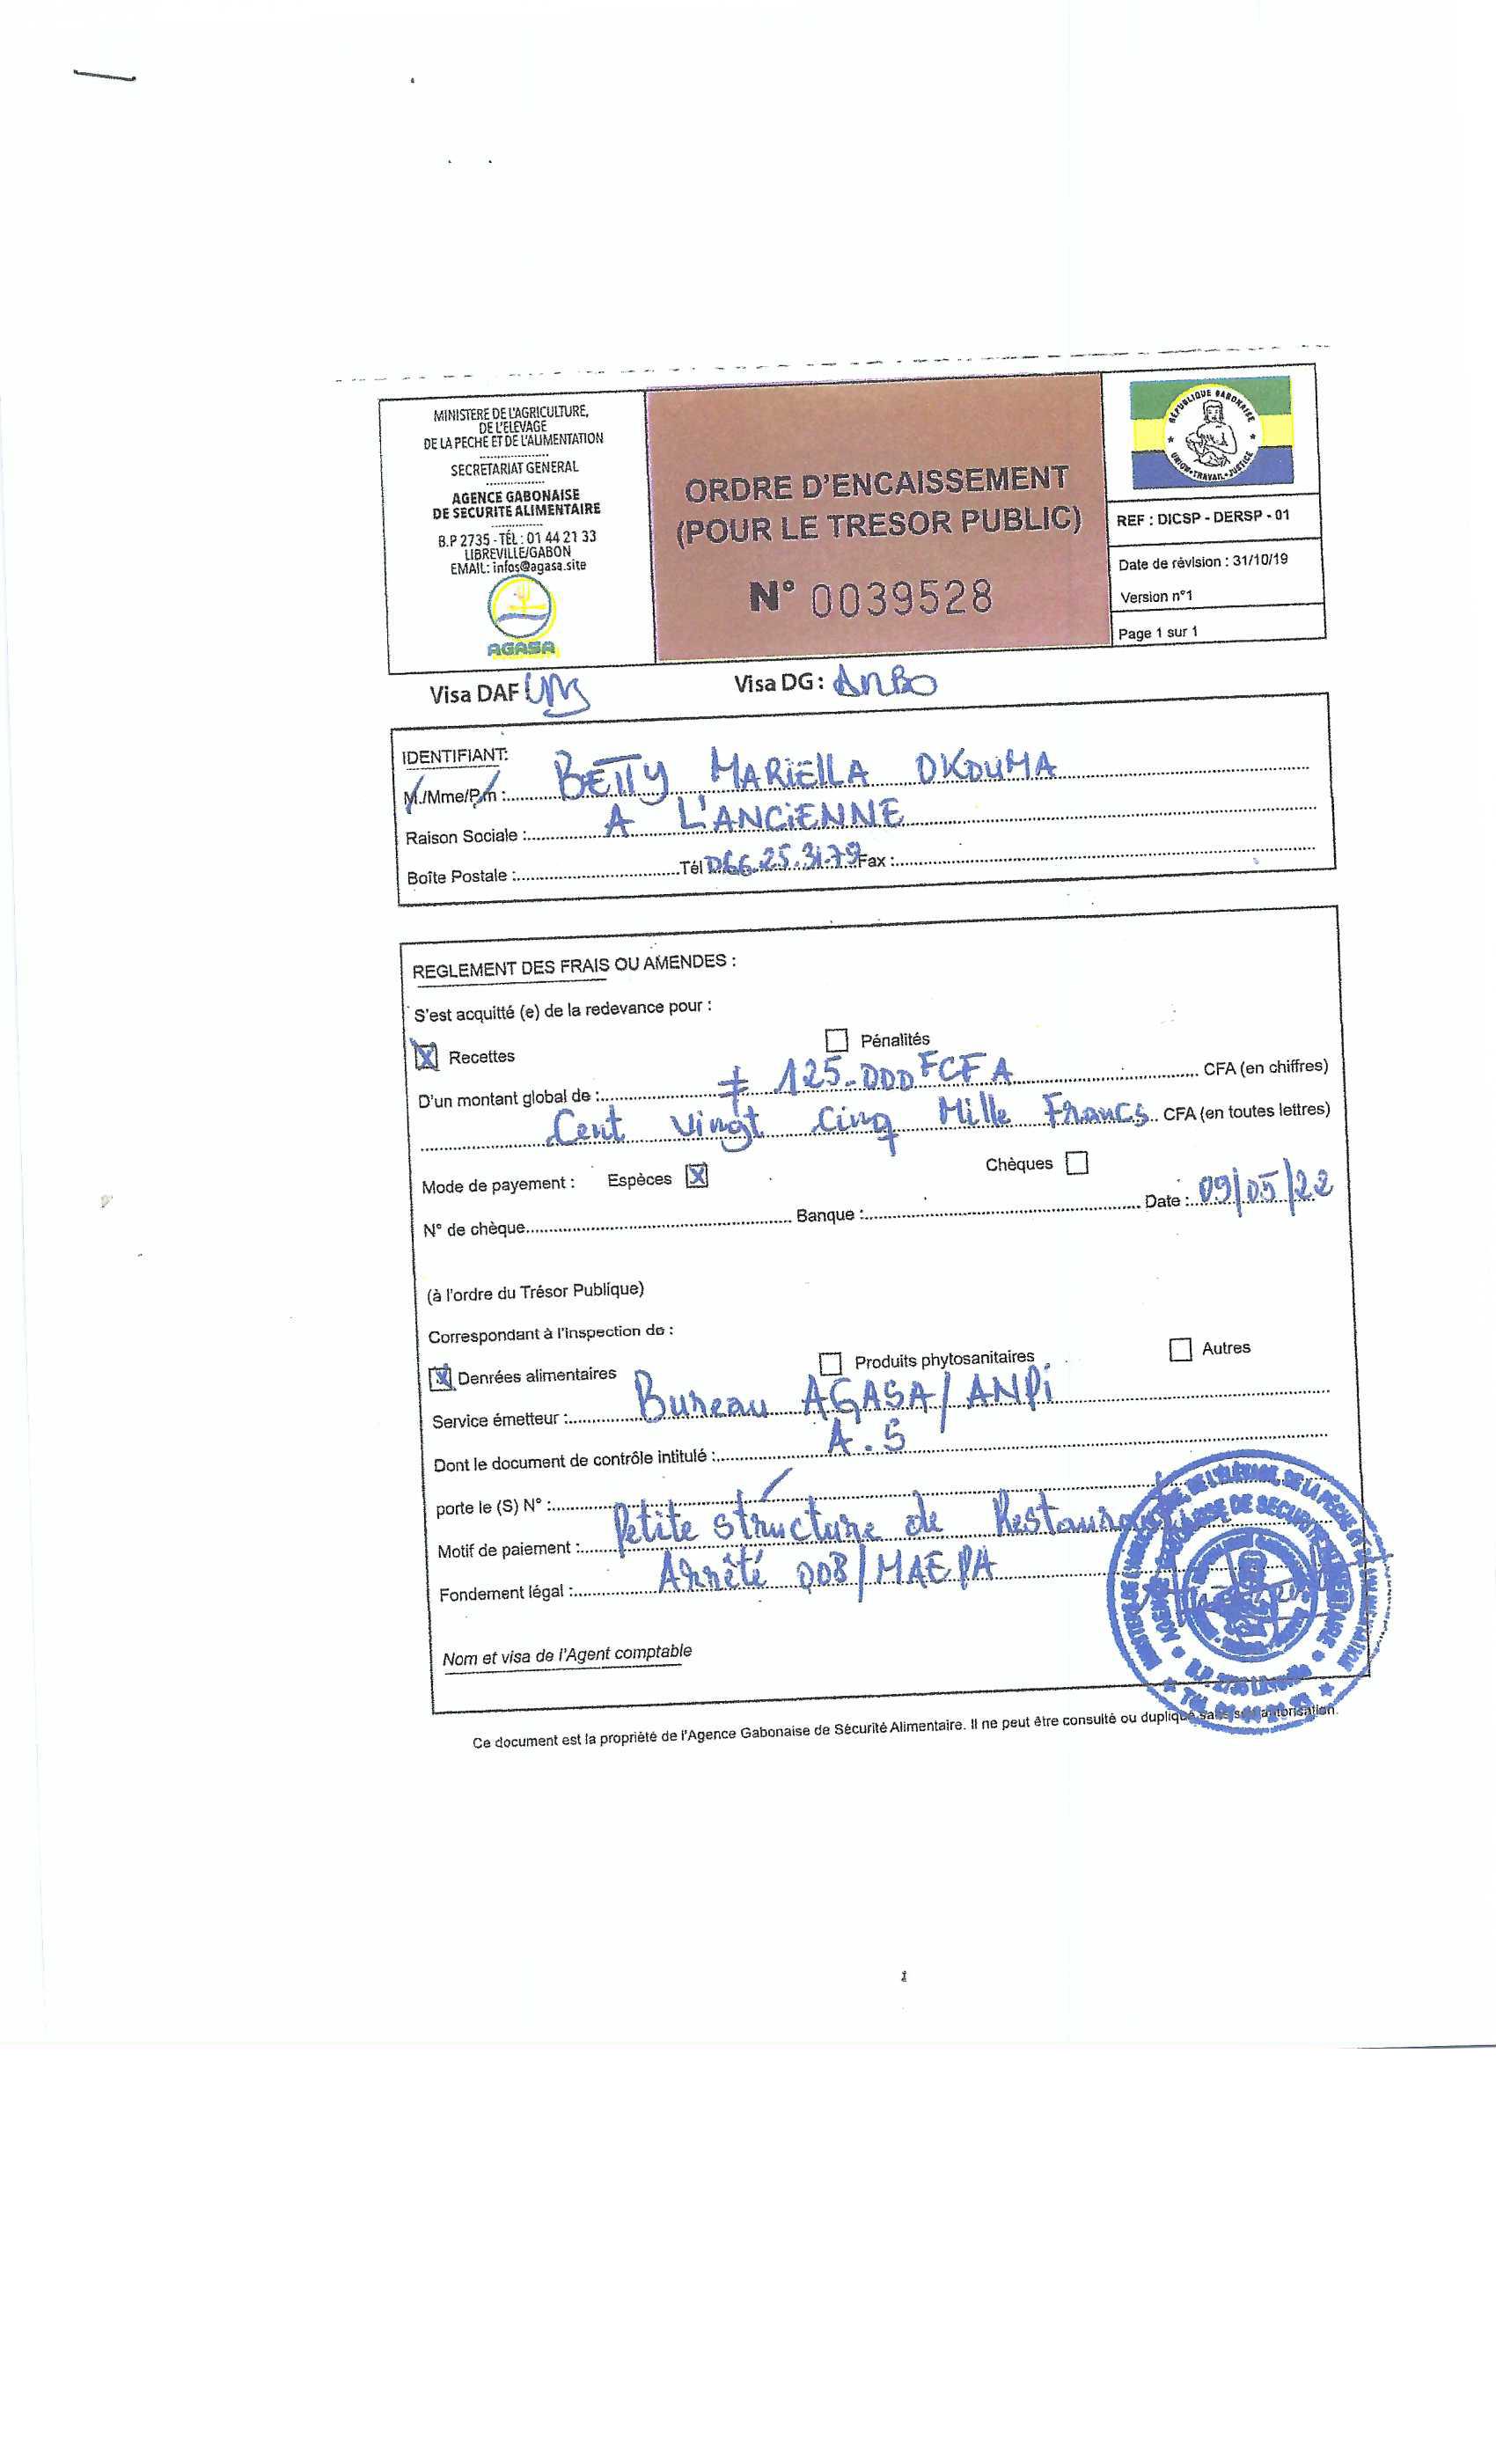 MINISTERE DE L'AGRICULTURE,
DE L'ELEVAGE
DE LA PECHE ET DE L'ALIMENTATION
SECRETARIAT GENERAL
AGENCE GABONAISE
DE SECURITE ALIMENTAIRE
B.P 2735 - TÉL : 01 44 21 33
LIBREVILLE/GABON
EMAIL: infos@agasa.site
AGASA
ORDRE D'ENCAISSEMENT
(POUR LE TRESOR PUBLIC)
N° 0039528
REPUBLIQUE GABONAISE
UNION-TRAVAIL-JUSTICE
REF : DICSP - DERSP - 01
Date de révision : 31/10/19
Version n°1
Page 1 sur 1
Visa DAF
Visa DG :
IDENTIFIANT:
M./Mme/Pm : BETTY MARIELLA OKOUMA
Raison Sociale : A L'ANCIENNE
Boîte Postale : Tél 066.25.31.79 Fax :
REGLEMENT DES FRAIS OU AMENDES :
S'est acquitté (e) de la redevance pour :
X Recettes Pénalités
D'un montant global de : ≠ 125.000 FCFA CFA (en chiffres)
Cent vingt cinq Mille Francs CFA (en toutes lettres)
Mode de payement : Espèces X Chèques
N° de chèque Banque : Date : 09/05/22
(à l'ordre du Trésor Publique)
Correspondant à l'inspection de :
X Denrées alimentaires Produits phytosanitaires Autres
Service émetteur : Bureau AGASA/ANPi
Dont le document de contrôle intitulé : A.S
porte le (S) N° : /
Motif de paiement : Petite structure de
Fondement légal : Arrêté 008/MAEPA
Nom et visa de l'Agent comptable
Ce document est la propriété de l'Agence Gabonaise de Sécurité Alimentaire. Il ne peut être consulté ou dupliqué sans son autorisation.